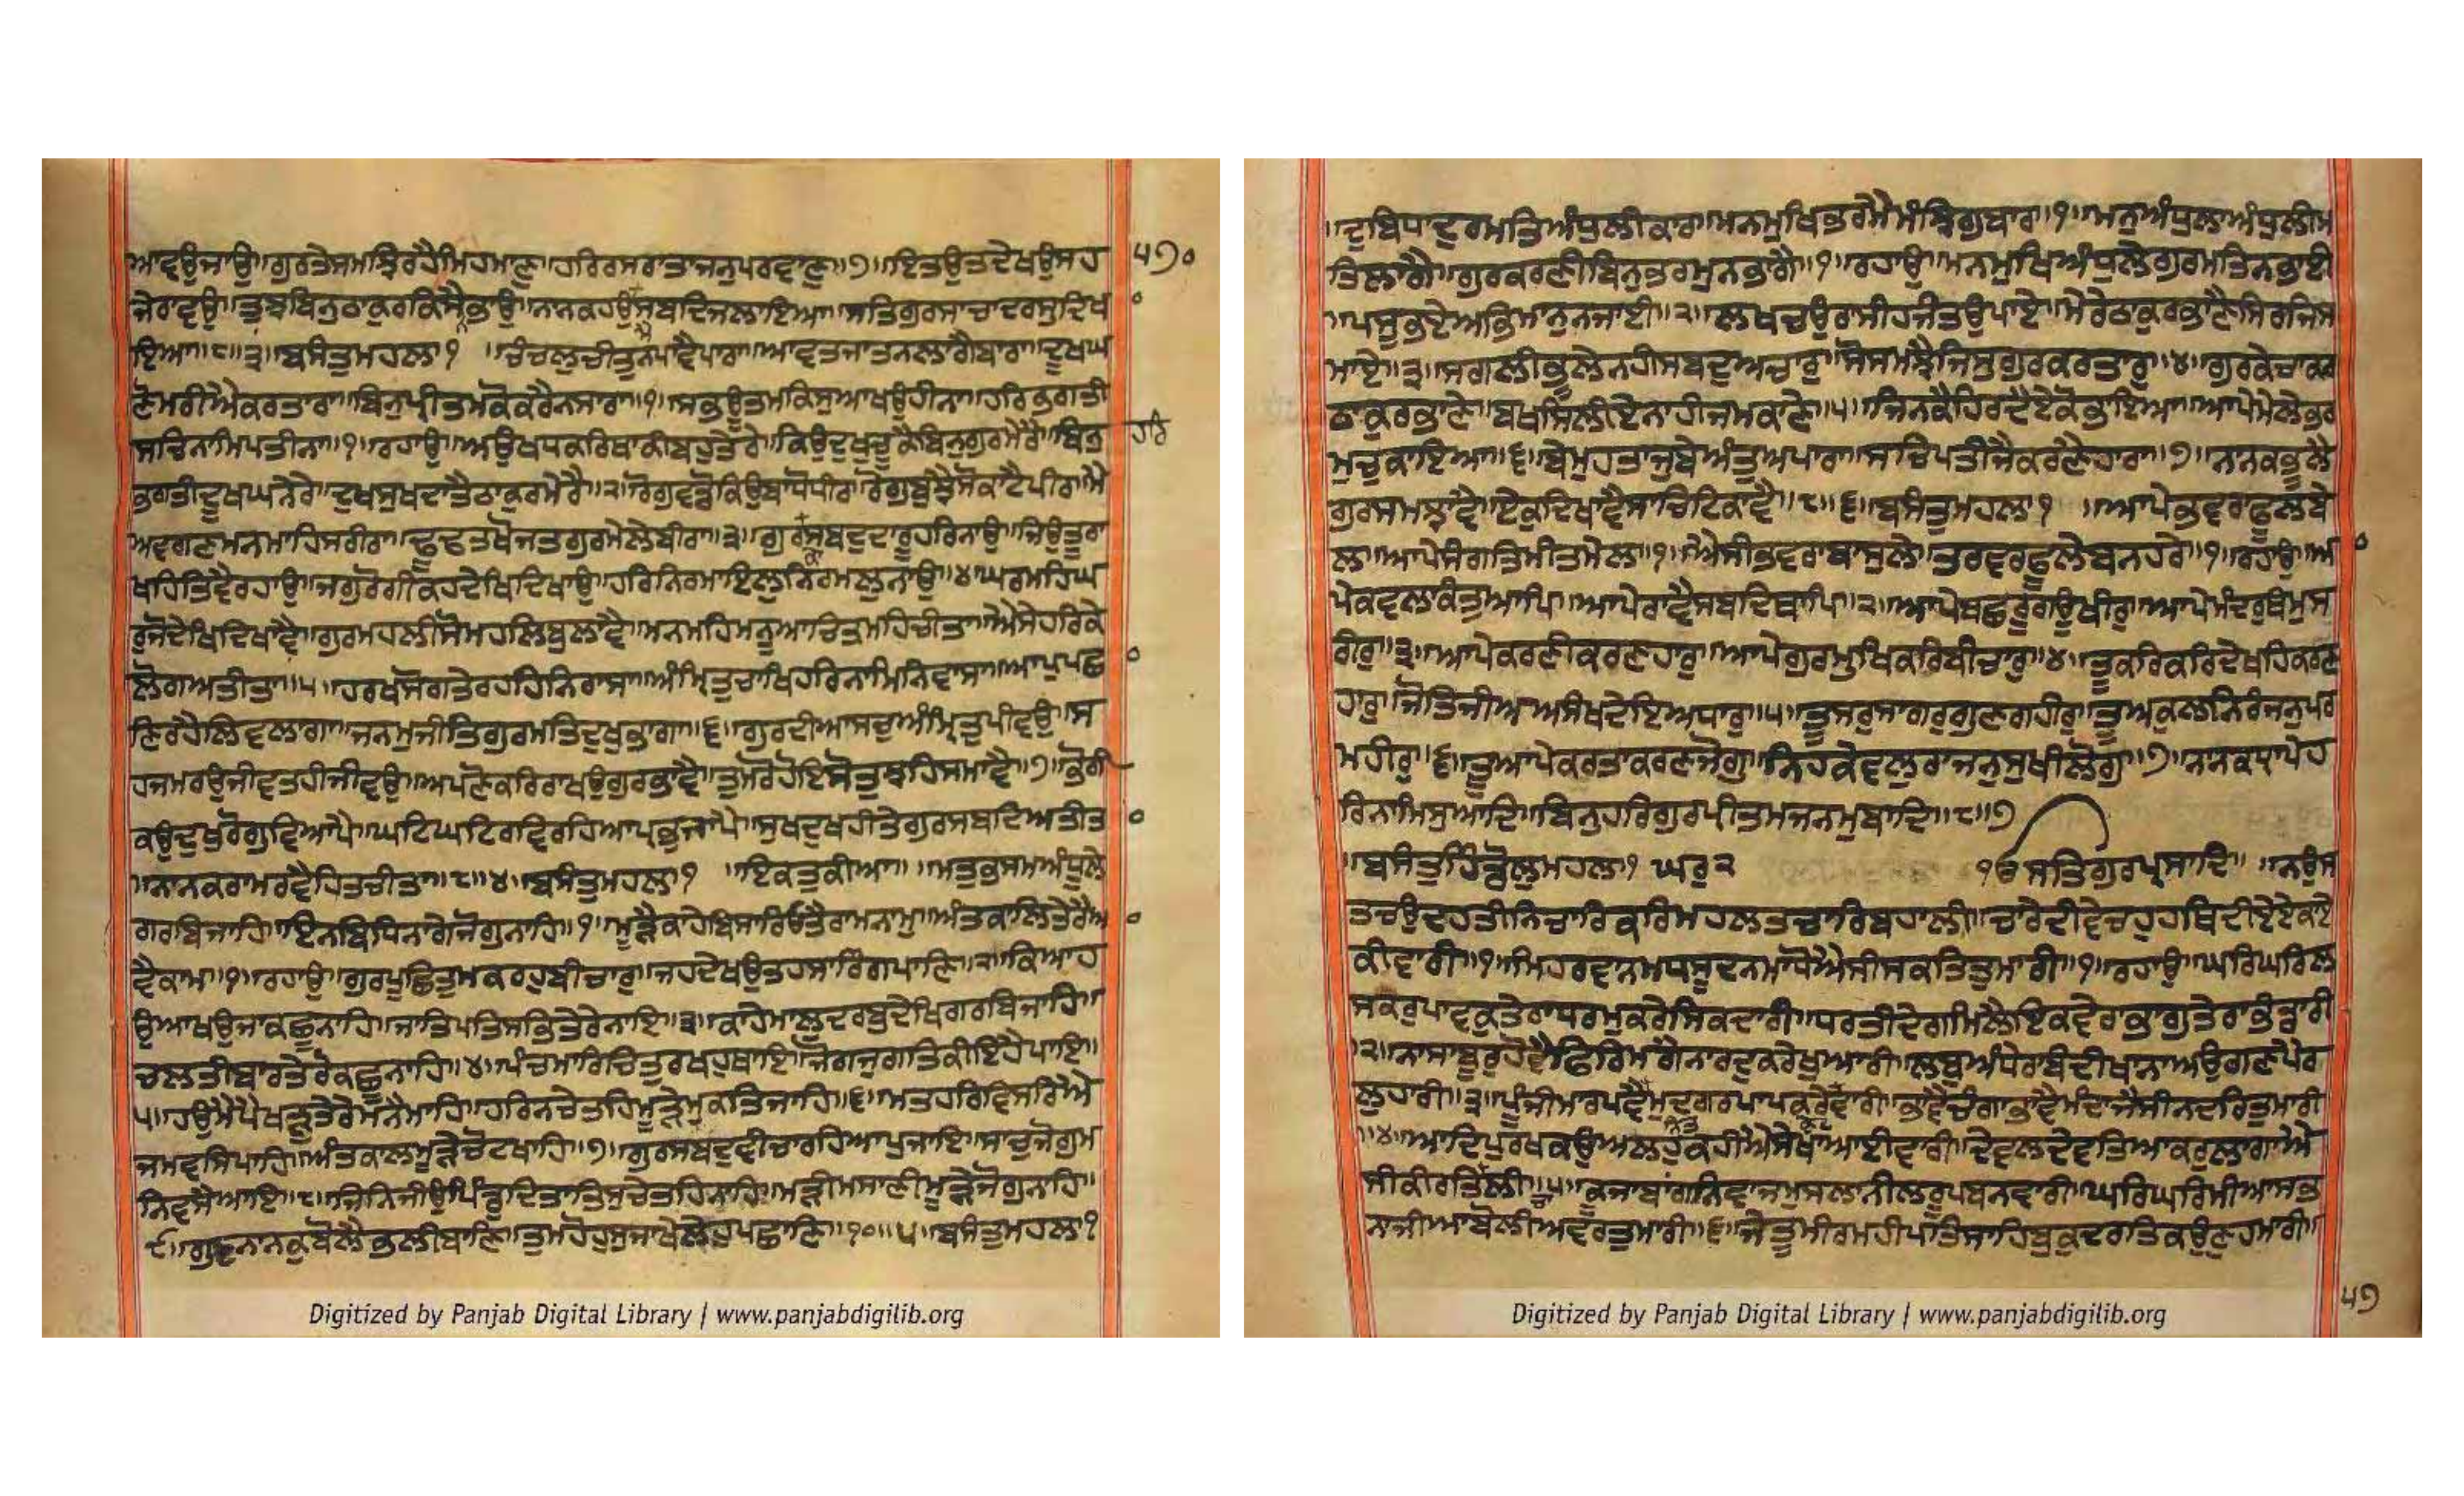 ਆਵਉਜਾਉ॥ਗੁਰਤੇਸਮਝਿਰਹੈਮਿਹਮਾਣੁ॥ਹਰਿਰਸਰਾਤਾਜਨੁਪਰਵਾਣੁ॥੭॥ਇਤਉਤਦੇਖਉਸਹ
੫੭੦
ਜੇਰਾਵਉ॥ਤੁਝਬਿਨੁਠਾਕੁਰਕਿਸੈਭਾਉ॥ਨਾਨਕਹਉਸਬਦਿਜਲਾਇਆ॥ਸਤਿਗੁਰਸਾਚਾਦਰਸੁਦਿਖ
ਇਆ॥੮॥੩॥ਬਸੰਤੁਮਹਲਾ੧ ॥ਚੰਚਲੁਚੀਤੁਨਪਾਵੈਪਾਰਾ॥ਆਵਤਜਾਤਨਲਾਗੈਬਾਰਾ॥ਦੂਖਘ
ਣੋਮਰੀਐਕਰਤਾਰਾ॥ਬਿਨੁਪ੍ਰੀਤਮਕੋਕਰੈਨਸਾਰਾ॥੧॥ਸਭਊਤਮਕਿਸੁਆਖਉਹੀਨਾ॥ਹਰਿਭਗਤੀ
ਸਚਿਨਾਮਿਪਤੀਨਾ॥੧॥ਰਹਾਉ॥ਅਉਖਧਕਰਿਥਾਕੀਬਹੁਤੇਰੇ॥ਕਿਉਦੁਖੁਚੂਕੈਬਿਨੁਗੁਰਮੇਰੇ॥ਬਿਨੁ
ਹਰਿ
ਭਗਤੀਦੂਖਘਨੇਰੇ॥ਦੁਖਸੁਖਦਾਤੈਠਾਕੁਰਮੇਰੈ॥੨॥ਰੋਗੁਵਡੋਕਿਉਬਾਂਧੋਧੀਰਾ॥ਰੋਗੁਬੁਝੈਸੋਕਾਟੈਪੀਰਾ॥ਮੈ
ਅਵਗਣਮਨਮਾਹਿਸਰੀਰਾ॥ਢੂਢਤਖੋਜਤਗੁਰਮੇਲੇਬੀਰਾ॥੩॥ਗੁਰਸਬਦੁਦਾਰੂਹਰਿਨਾਉ॥ਜਿਉਤੂਰਾ
ਖਹਿਤਿਵੈਰਹਾਉ॥ਜਗੁਰੋਗੀਕਹਦੇਖਿਦਿਖਾਉ॥ਹਰਿਨਿਰਮਾਇਲੁਨਿਰਮਲੁਨਾਉ॥੪॥ਘਰਮਹਿਘ
ਰੁਜੋਦੇਖਿਦਿਖਾਵੈ॥ਗੁਰਮਹਲੀਸੋਮਹਲਿਬੁਲਾਵੈ॥ਮਨਮਹਿਮਨੂਆਚਿਤਮਹਿਚੀਤਾ॥ਐਸੇਹਰਿਕੇ
ਲੋਗਅਤੀਤਾ॥੫॥ਹਰਖਸੋਗਤੇਰਹਹਿਨਿਰਾਸਾ॥ਅੰਮ੍ਰਿਤੁਚਾਖਿਹਰਿਨਾਮਿਨਿਵਾਸਾ॥ਆਪੁਪਛ
ਣਿਰਹੈਲਿਵਲਾਗਾ॥ਜਨਮੁਜੀਤਿਗੁਰਮਤਿਦੁਖੁਭਾਗਾ॥੬॥ਗੁਰਦੀਆਸਚੁਅੰਮ੍ਰਿਤੁਪੀਵਉ॥ਸ
ਹਜਮਰਉਜੀਵਤਹੀਜੀਵਉ॥ਅਪਣੋਕਰਿਰਾਖਉਗੁਰਭਾਵੈ॥ਤੁਮਰੋਹੋਇਸੋਤੁਝਹਿਸਮਾਵੈ॥੭॥ਭੋਗੀ
ਕਉਦੁਖੁਰੋਗੁਵਿਆਪੈ॥ਘਟਿਘਟਿਰਵਿਰਹਿਆਪ੍ਰਭੁਜਾਪੈ॥ਸੁਖਦੁਖਹੀਤੇਗੁਰਸਬਦਿਅਤੀਤ
॥ਨਾਨਕਰਾਮਰਵੈਹਿਤਚੀਤਾ॥੮॥੪॥ਬਸੰਤੁਮਹਲਾ੧ ॥ਇਕਤੁਕੀਆ॥ ॥ਮਤੁਭਸਮਅੰਧੂਲੇ
ਗਰਬਿਜਾਹਿ॥ਇਨਬਿਧਿਨਾਗੇਜੋਗੁਨਾਹਿ॥੧॥ਮੂੜ੍ਹੇਕਾਹੇਬਿਸਾਰਿਓਤੈਰਾਮਨਾਮੁ॥ਅੰਤਕਾਲਿਤੇਰੈਅ
ਵੈਕਾਮ॥੧॥ਰਹਾਉ॥ਗੁਰਪੂਛਿਤੁਮਕਰਹੁਬੀਚਾਰੁ॥ਜਹਦੇਖਉਤਹਸਾਰਿੰਗਪਾਣਿ॥੨॥ਕਿਆਹ
ਉਆਖਉਜਾਕਛੂਨਾਹਿ॥ਜਾਤਿਪਤਿਸਭਿਤੇਰੇਨਾਇ॥੩॥ਕਾਹੇਮਾਲੁਦਰਬੁਦੇਖਿਗਰਬਿਜਾਹਿ॥
ਚਲਤੀਬਾਰਤੇਰੋਕਛੂਨਾਹਿ॥੪॥ਪੰਚਮਾਰਿਚਿਤੁਰਖਹੁਥਾਇ॥ਜੋਗਜੁਗਤਿਕੀਇਹੈਪਾਂਇ॥
੫॥ਹਉਮੈਪੈਖੜੁਤੇਰੇਮਨੈਮਾਹਿ॥ਹਰਿਨਚੇਤਹਿਮੂੜ੍ਹੇਮੁਕਤਿਜਾਹਿ॥੬॥ਮਤਹਰਿਵਿਸਰਿਐ
ਜਮਵਸਿਪਾਹਿ॥ਅੰਤਕਾਲਮੂੜ੍ਹੇਚੋਟਖਾਹਿ॥੭॥ਗੁਰਸਬਦੁਵੀਚਾਰਹਿਆਪੁਜਾਇ॥ਸਾਚੁਜੋਗੁਮ
ਨਿਵਸੈਆਇ॥੮॥ਜਿਨਿਜੀਉਪਿੰਡੁਦਿਤਾਤਿਸੁਚੇਤਹਿਨਾਹਿ॥ਮੜੀਮਸਾਣੀਮੂੜ੍ਹੇਜੋਗੁਨਾਹਿ॥
੯॥ਗੁਣਨਾਨਕੁਬੋਲੈਭਲੀਬਾਣਿ॥ਤੁਮਹੋਹੁਸੁਜਾਖੇਲੇਹੁਪਛਾਣਿ॥੧੦॥੫॥ਬਸੰਤੁਮਹਲਾ੧
Digitized by Panjab Digital Library | www.panjabdigilib.org
॥ਦੁਬਿਧਾਦੁਰਮਤਿਅੰਧੁਲੀਕਾਰਾ॥ਮਨਮੁਖਿਭਰਮੈਮੰਝਿਗੁਬਾਰਾ॥੧॥ਮਨੁਅੰਧੁਲਾਅੰਧੁਲੀਮ
ਤਿਲਾਗੈ॥ਗੁਰਕਰਣੀਬਿਨੁਭਰਮੁਨਭਾਗੈ॥੧॥ਰਹਾਉ॥ਮਨਮੁਖਿਅੰਧੁਲੇਗੁਰਮਤਿਨਭਾਈ
॥ਪਸੂਭਏਅਭਿਮਾਨੁਨਜਾਈ॥੨॥ਲਖਚਉਰਾਸੀਹਜੰਤਉਪਾਏ॥ਮੇਰੇਠਾਕੁਰਭਾਣੈਸਿਰਜਿਸ
ਮਾਏ॥੩॥ਸਗਲੀਭੂਲੇਨਹੀਸਬਦੁਅਚਾਰੁ॥ਸੋਸਮਝੈਜਿਸੁਗੁਰਕਰਤਾਰੁ॥੪॥ਗੁਰਕੇਚਾਕਰ
ਠਾਕੁਰਭਾਣੇ॥ਬਖਸਿਲੀਏਨਾਹੀਜਮਕਾਣੇ॥੫॥ਜਿਨਕੈਹਿਰਦੈਏਕੋਭਾਇਆ॥ਆਪੇਮੇਲੇਭਰ
ਮੁਚੁਕਾਇਆ॥੬॥ਬੇਮੁਹਤਾਜੁਬੇਅੰਤੁਅਪਾਰਾ॥ਸਚਿਪਤੀਜੈਕਰਣੈਹਾਰਾ॥੭॥ਨਾਨਕਭੂਲੇ
ਗੁਰਸਮਝਾਵੈ॥ਏਕੁਦਿਖਾਵੈਸਾਚਿਟਿਕਾਵੈ॥੮॥੬॥ਬਸੰਤੁਮਹਲਾ੧ ॥ਆਪੇਭਵਰਾਫੂਲਬੇ
ਲਾ॥ਆਪੇਸੰਗਤਿਮੀਤਮੇਲਾ॥੧॥ਐਸੀਭਵਰਾਬਾਸੁਲੇ॥ਤਰਵਰਫੂਲੇਬਨਹਰੇ॥੧॥ਰਹਾਉ॥ਅ
ਪੇਕਵਲਾਕੰਤੁਆਪਿ॥ਆਪੇਰਾਵੈਸਬਦਿਥਾਪਿ॥੨॥ਆਪੇਬਛਰੂਗਊਖੀਰੁ॥ਆਪੇਮੰਦਰੁਥੰਮੁਸ
ਰੀਰੁ॥੩॥ਆਪੇਕਰਣੀਕਰਣਹਾਰੁ॥ਆਪੇਗੁਰਮੁਖਿਕਰਿਬੀਚਾਰੁ॥੪॥ਤੂਕਰਿਕਰਿਦੇਖਹਿਕਰਣ
ਹਾਰੁ॥ਜੋਤਿਜੀਅਅਸੰਖਦੇਇਅਧਾਰੁ॥੫॥ਤੂਸਰੁਸਾਗਰੁਗੁਣਗਹੀਰੁ॥ਤੂਅਕੁਲਨਿਰੰਜਨੁਪਰ
ਮਹੀਰੁ॥੬॥ਤੂਆਪੇਕਰਤਾਕਰਣਜੋਗੁ॥ਨਿਹਕੇਵਲੁਰਾਜਨੁਸੁਖੀਲੋਗੁ॥੭॥ਨਾਨਕਧ੍ਰਾਪੇਹ
ਰਿਨਾਮਿਸੁਆਦਿ॥ਬਿਨੁਹਰਿਗੁਰਪ੍ਰੀਤਮਜਨਮੁਬਾਦਿ॥੮॥੭
॥ਬਸੰਤੁਹਿੰਡੋਲੁਮਹਲਾ੧ ਘਰੁ੨ ੴਸਤਿਗੁਰਪ੍ਰਸਾਦਿ॥ ॥ਨਉਸ
ਤਚਉਦਹਤੀਨਿਚਾਰਿਕਰਿਮਹਲਤਚਾਰਿਬਹਾਲੀ॥ਚਾਰੇਦੀਵੇਚਹੁਹਥਿਦੀਏਏਕਏ
ਕੀਵਾਰੀ॥੧॥ਮਿਹਰਵਾਨਮਧਸੂਦਨਮਾਧੋਐਸੀਸਕਤਿਤੁਮਾਰੀ॥੧॥ਰਹਾਉ॥ਘਰਿਘਰਿਲ
ਸਕਰੁਪਾਵਕੁਤੇਰਾਧਰਮੁਕਰੇਸਿਕਦਾਰੀ॥ਧਰਤੀਦੇਗਮਿਲੈਇਕਵੇਰਾਭਾਗੁਤੇਰਾਭੰਡਾਰੀ
॥੨॥ਨਾਸਾਬੂਰੁਹੋਵੈਫਿਰਿਮੰਗੈਨਾਰਦੁਕਰੇਖੁਆਰੀ॥ਲਬੁਅੰਧੇਰਾਬੰਦੀਖਾਨਾਅਉਗਣਪੈਰ
ਲੁਹਾਰੀ॥੩॥ਪੂੰਜੀਮਾਰਪਵੈਮੁਦਗਰਪਾਪਕਰੇਕੋੁਟਵਾਰੀ॥ਭਾਵੈਚੰਗਾਭਾਵੈਮੰਦਾਜੈਸੀਨਦਰਿਤੁਮਾਰੀ
॥੪॥ਆਦਿਪੁਰਖਕਉਅਲਹੁਕਹੀਐਸੇਖਾਂਆਈਵਾਰੀ॥ਦੇਵਲਦੇਵਤਿਆਕਰੁਲਾਗਾਐ
ਸੀਕੀਰਤਿਚਾਲੀ॥੫॥ਕੂਜਾਬਾਂਗਨਿਵਾਜਮੁਸਲਾਨੀਲਰੂਪਬਨਵਾਰੀ॥ਘਰਿਘਰਿਮੀਆਸਭ
ਨਾਜੀਆਬੋਲੀਅਵਰਤੁਮਾਰੀ॥੬॥ਜੇਤੂਮੀਰਮਹੀਪਤਿਸਾਹਿਬੁਕੁਦਰਤਿਕਉਣਹਮਾਰੀ॥
੫੭
Digitized by Panjab Digital Library | www.panjabdigilib.org